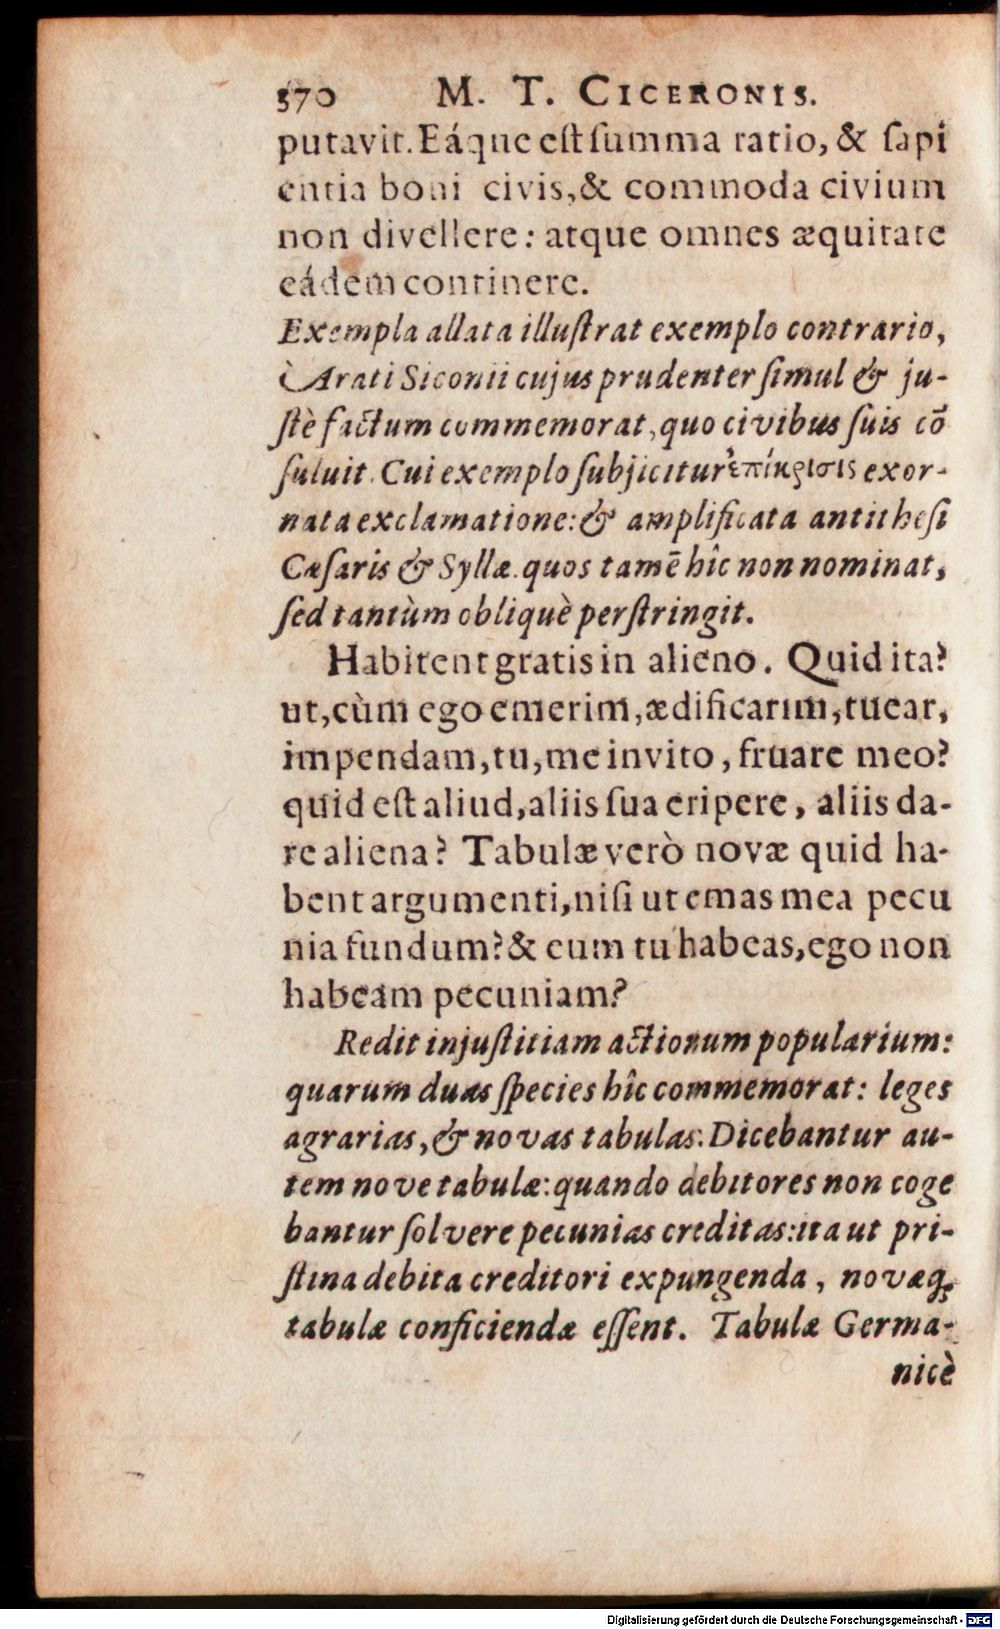 570 M. T. CICERONIS.
putavit. Eáque est summa ratio, & sapi
entia boni civis, & commoda civium
non divellere: atque omnes æquitate
eádem continere.
Exempla allata illuſtrat exemplo contrario,
Arati Siconii cujus prudenter ſimul & ju-
ſtè factum commemorat, quo civibus ſuis cō
ſuluit. Cui exemplo ſubjicitur ἐπίκρισις exor-
nata exclamatione: & amplificata antitheſi
Cæſaris & Syllæ. quos tamē hîc non nominat,
ſed tantùm obliquè perſtringit.
Habitent gratis in alieno. Quid ita?
ut, cùm ego emerim, ædificarim, tuear,
impendam, tu, me invito, fruare meo?
quid eſt aliud, aliis ſua eripere, aliis da-
re aliena? Tabulæ verò novæ quid ha-
bent argumenti, niſi ut emas mea pecu
nia fundum? & eum tu habeas, ego non
habeam pecuniam?
Redit injuſtitiam actionum popularium:
quarum duas ſpecies hîc commemorat: leges
agrarias, & novas tabulas. Dicebantur au-
tem nove tabulæ: quando debitores non coge
bantur ſolvere pecunias creditas: ita ut pri-
ſtina debita creditori expungenda, novæq;
tabulæ conficiendæ eſſent. Tabulæ Germa-
nicè
Digitalisierung gefördert durch die Deutsche Forschungsgemeinschaft - DFG